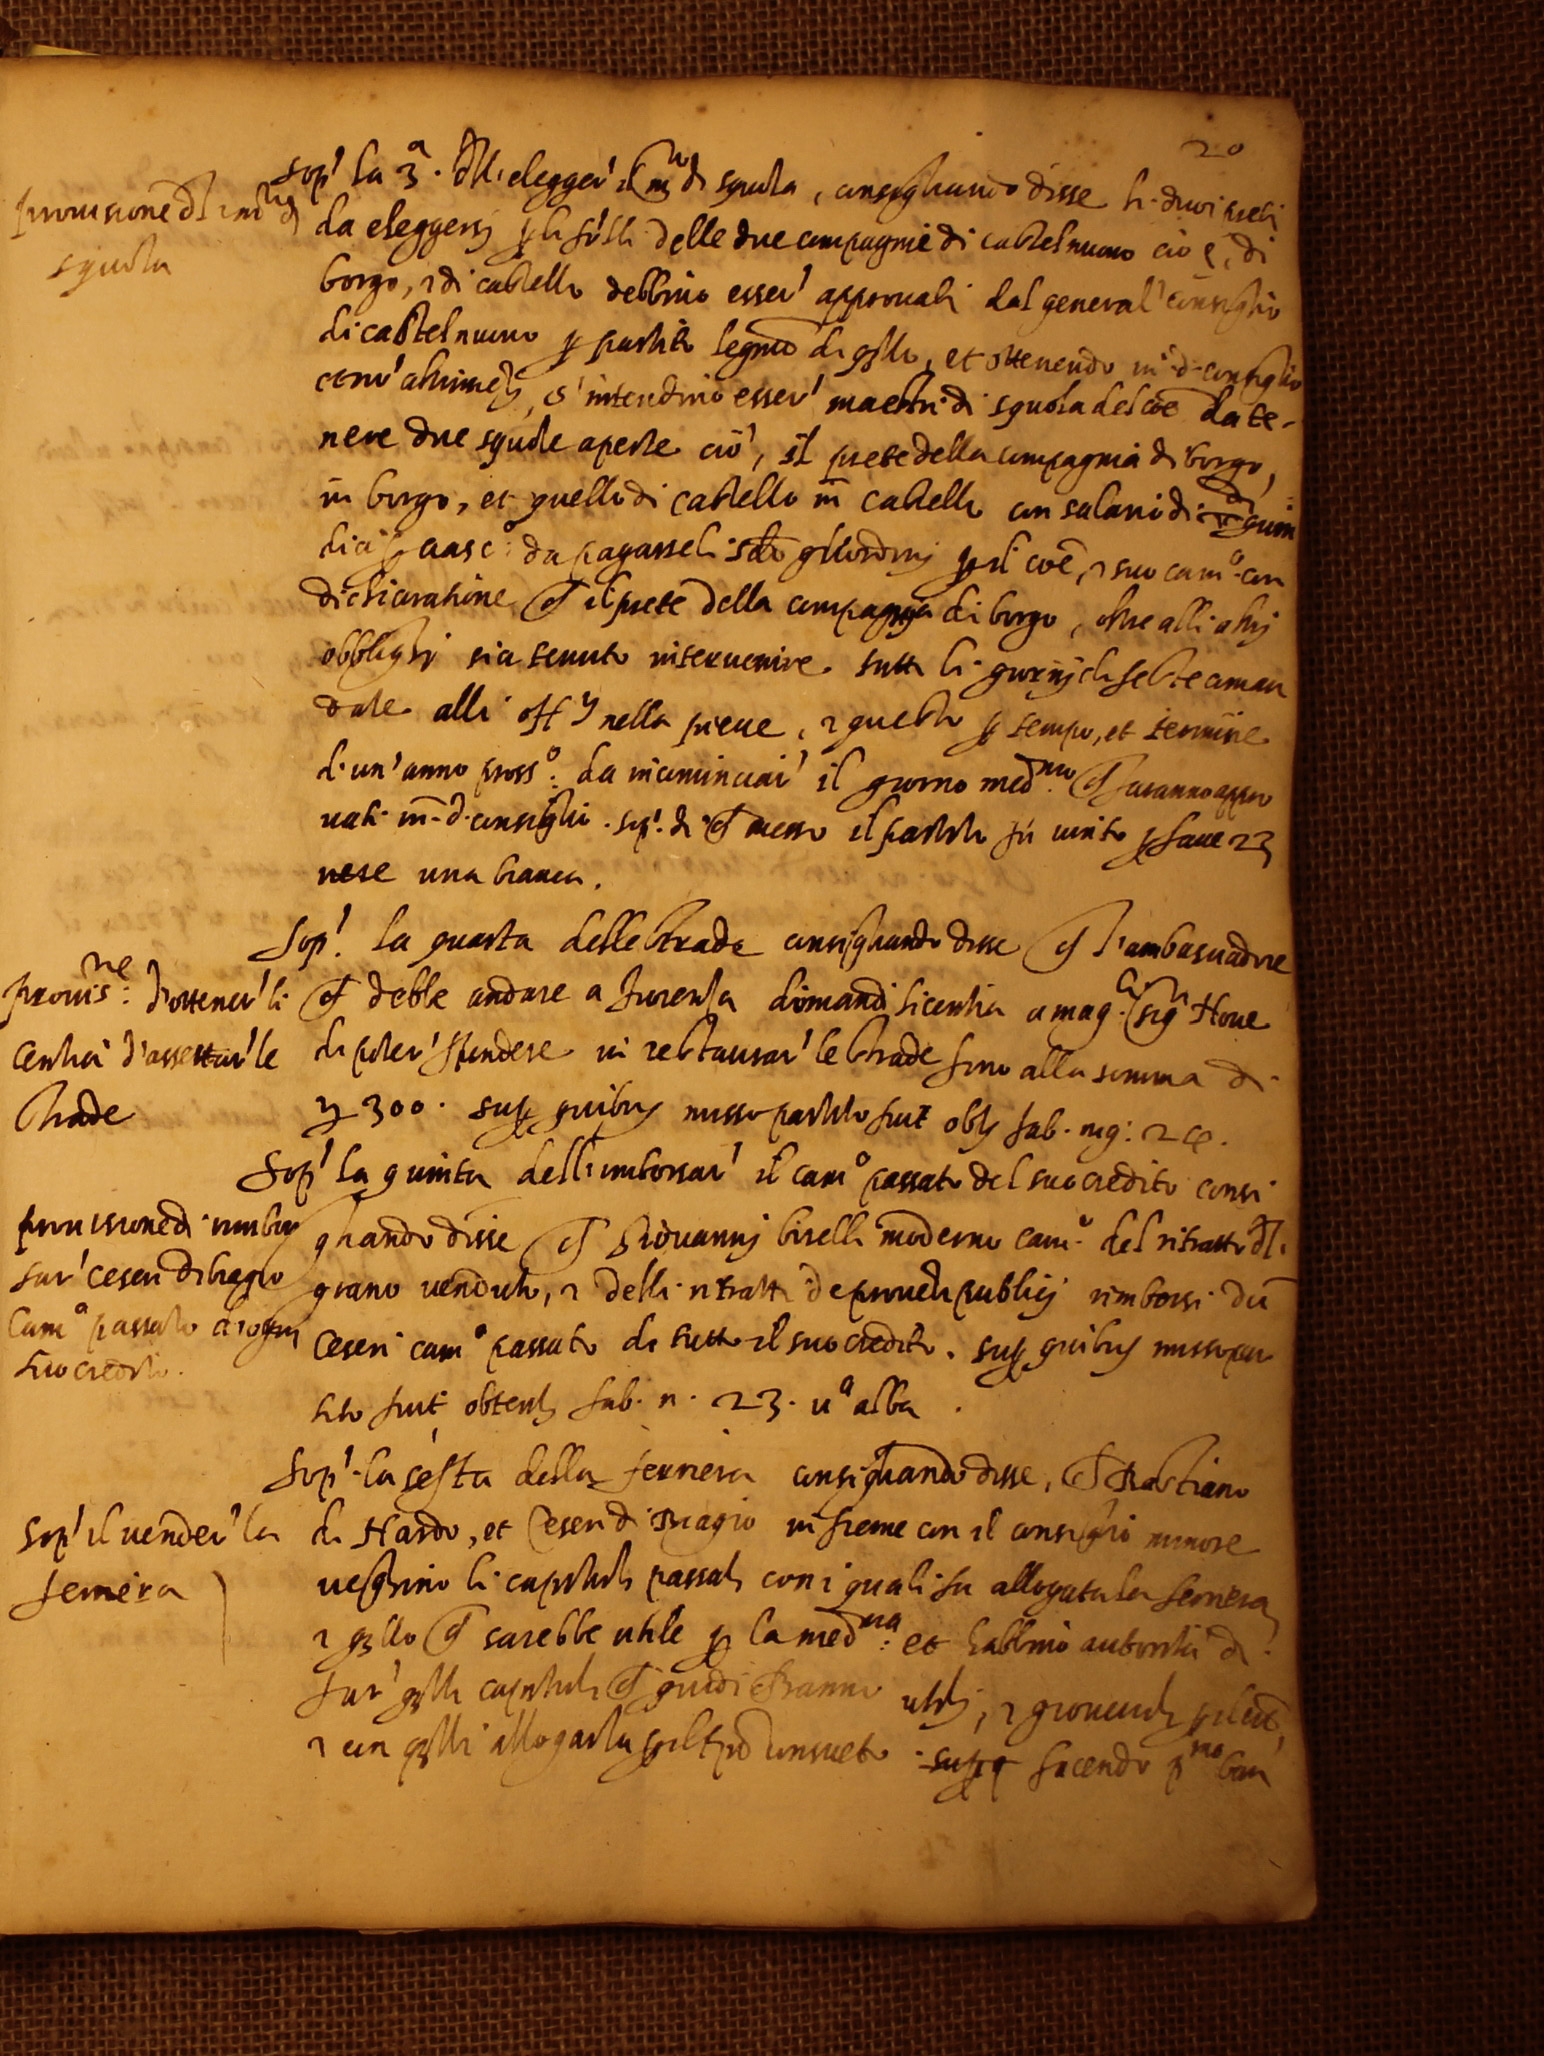 20
Sop.' la 3.a dell'elegger' il m.ro di squola, consigliando disse li duoi preti
provisione del m.ro di
squola
da eleggersi p li fr'lli delle due compagnie di castelnuovo cio è, di
borgo, et di castello debbino esser' approvati dal general' consiglio
di castelnuovo p partito legmo di qllo, et ottenendo in d. consiglio
s'intendino esser' maestri di squola del coe da te-
nere due squole aperte cio', il prete della compagnia di borgo,
in borgo, et quello di castello in castello con salario di quin
dici da pagarseli gli ordini p il coe, et suo cam.o con
dichiaratione che il prete della compagnia di borgo, oltre alli altri
obblighi sia tenuto intervenire tutti li giorni et feste coman
date alli off.ij nella pieve, et questo p tempo, et termine
d'un'anno pross.o: da incominciar' il giorno med.mo che saranno appro
vati in d. consiglio. sop.' di che messo il partito fù vinto p fave 23
nere una bianca.
Sop.' la quarta delle strade consigliando disse che l'ambasciadore
provis.ne: d'ottener' li
centia d'assettar' le
strade
che debbe andare a dimandi licentia a mag.ci sig.ri Nove
di poter' spendere in restaurar' le strade fino alla somma di
300. sup quibus misso partito fuit obt. fab. nig: 24.
Sop.' la quinta dell'imborsar' il cam.o passato del suo credito consi
provisione di rimbor
sar' Ceseri di biagio
Cam.o passato d'ogni
suo credito.
gliando disse che Giovanni biselli moderno cam.o del ritratto del
grano venduto, et delli ritratti de proventi publici rimborsi du
Ceseri cam.o passato di tutto il suo credito. sup quibus misso par
tito fuit obtent. fab. n. 23. u.a alba.
Sop.' la sesta della ferriera consigliando disse, che Bastiano
Sop.' il vender' la
ferriera
di Nardo, et Ceseri di Biagio insieme con il consiglio minore
veghino li capituli passati con i quali fu allogata la ferriera
et qllo che sarebbe utile p la med.ma: et habbino autorità di
far' qlli capituli che giudicheranno utili, et giovevoli p il coe,
et con qlli allogarla p il tpo consueto sup q facendo p.mo ban